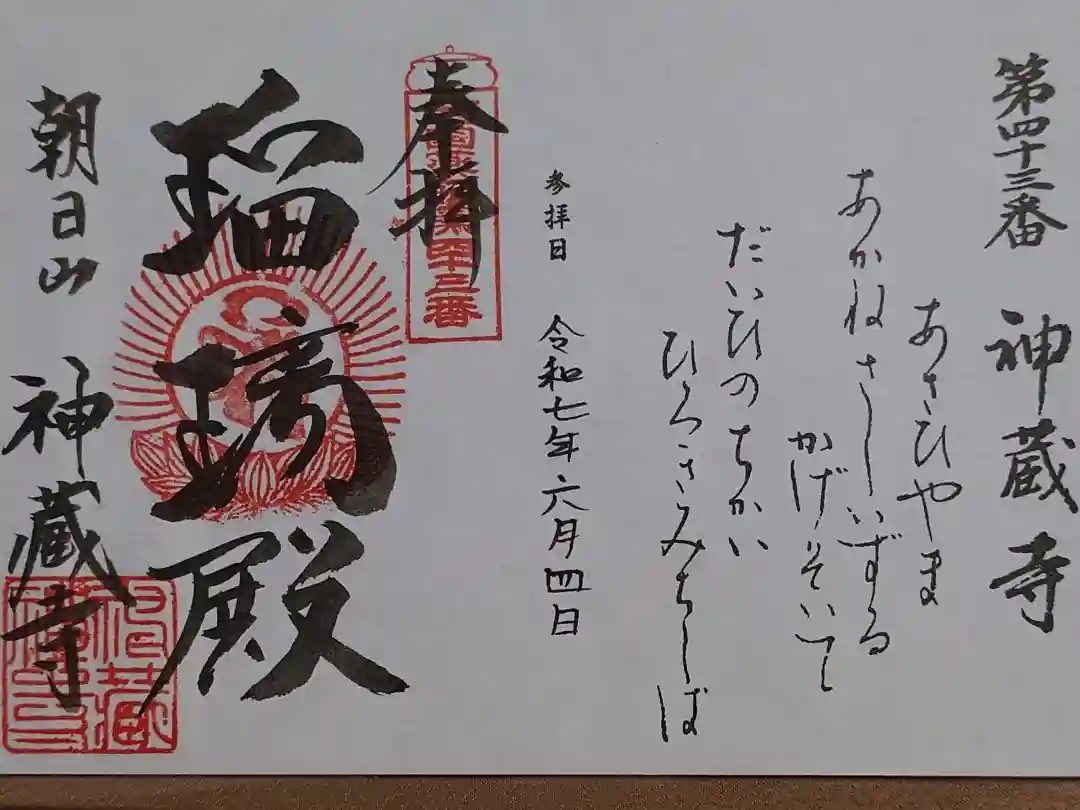 第四十三番 神蔵寺
あさひやま
あかねさしいずる
かげそいて
だいひのちかい
ひろきみちしば
参拝日 令和七年六月四日
奉拝
四十三番
瑠璃殿
朝日山 神蔵寺